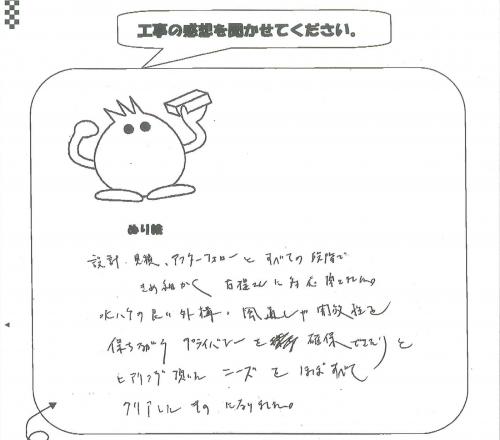 工事の感想を聞かせてください。
ぬり絵
設計、見積、アフターフォローと すべての 段階で
きめ細かく 対応
水ハケの良い外構、風通しや 開放性を
保ちながら プライバシーを 確保できたりと
ヒアリング頂いた ニーズを ほぼすべて
クリアした ものになりました。